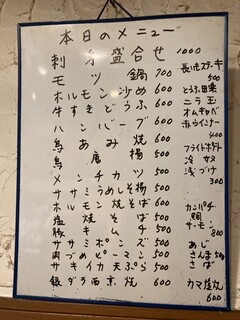 本日のメニュー
刺身盛合せ 1000
モツ鍋 700
ホルモン炒め 600
牛すきどうふ 600
ハンバーグ 600
鳥あみ焼 600
鳥唐揚 500
メンチカツ 500
ササミうめしそ揚 500
ホルモン焼そば 600
塩焼そば 500
豚キムチ 500
ササミポンズ 500
肉づめピーマン 500
サキイカ天ぷら 500
銀ダラ西京焼 600
長いもステーキ
500
とうふ田楽
ニラ玉
オムキャベ
赤ウインナー
400
フライドポテト
冷奴
浅づけ
300
カンパチ
鯛
サーモン
800
あじ
さんま 500
さば
カマ塩焼
600